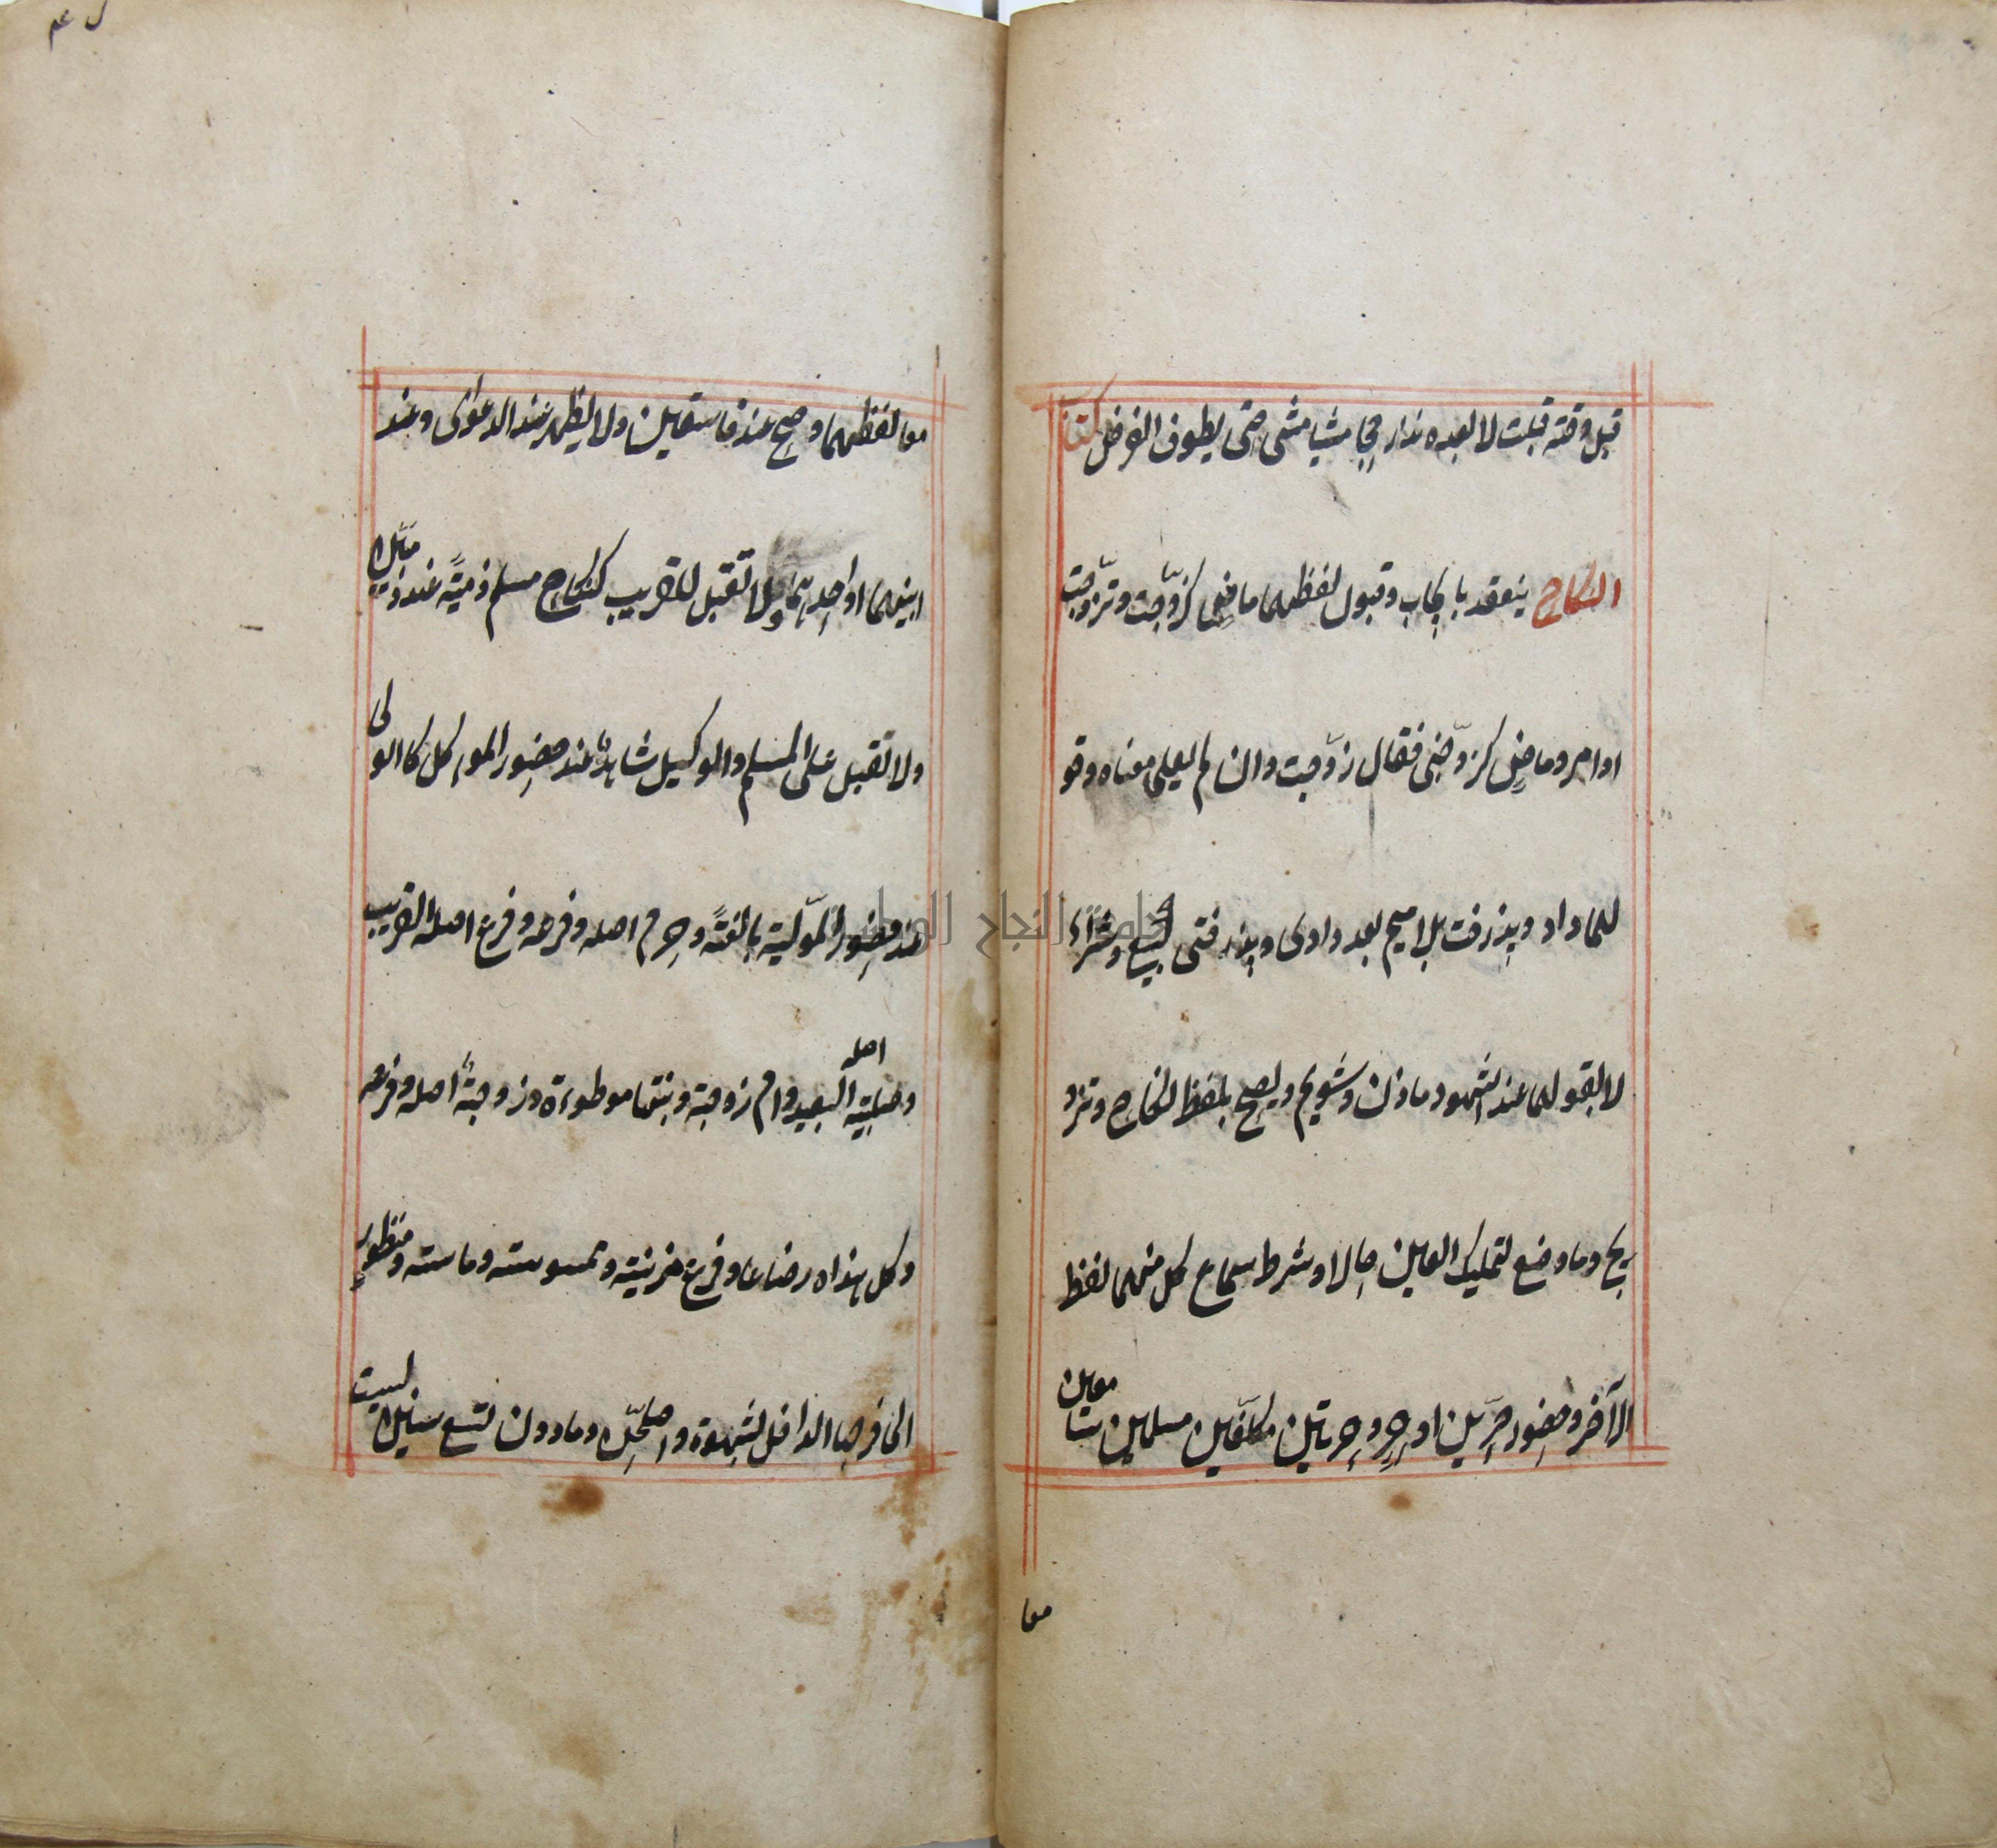 قبل وقته قبلت لا بعده نذر حجا مشيا مشى حتى يطوف الفرض كتاب
النكاح ينعقد بايجاب وقبول لفظهما ماض كزوّجت وتزوّجت
او امر وماض كزوّجنى فقال زوّجت وان لم يعلما معناه وقو
لهما داد وپذرفت بلا ميم بعد دادى وپذرفتى كبيع وشراء
لا بقولهما عند الشهود ما زن وشويم ويصح بلفظ نكاح وتزو
يج وما وضع لتمليك العين حالا وشرط سماع كل منهما لفظ
الآخر وحضور حرّين او حر وحرتين مكلّفين مسلمين سامعين
معا
معا لفظهما وصح عند فاسقين ولا يظهر عند الدعوى وعند
ابنيهما او احدهما ولا تقبل للقريب كنكاح مسلم ذميّة عند ذميّين
ولا تقبل على المسلم والوكيل شاهد عند حضور الموكل كالولى
عند حضور المولّية بالغة وحرم اصله وفرعه وفرع اصله القريب
وصلبيّة اصله البعيد وام زوجته وبنتها موطوءة وزوجة اصله وفرعه
وكل هذه رضاعا وفرع مزنيته وممسوسته وماسته ومنظور
الى فرجها الداخل بشهوة واصلهنّ وما دون تسع سنين ليست